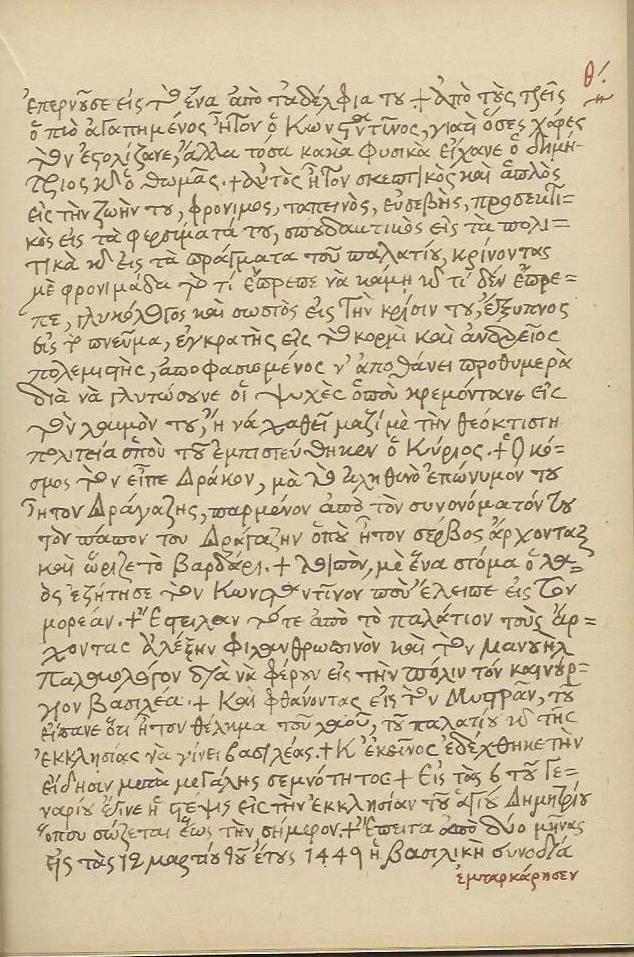 θ΄.
ἐπερνοῦσε εἰς τὸν ἕνα ἀπὸ τ' ἀδέλφια του + Ἀπὸ τοὺς τρεῖς
ὁ πιὸ ἀγαπημένος ἦτον ὁ Κωνσταντῖνος, γιατὶ ὅσες χάρες
τὸν ἐστολίζανε, ἄλλα τόσα κακὰ φυσικὰ εἴχανε ὁ Δημή-
τριος κι' ὁ Θωμᾶς. + Αὐτὸς ἦτον σκεπτικὸς καὶ ἁπλὸς
εἰς τὴν ζωήν του, φρόνιμος, ταπεινὸς, εὐσεβὴς, προσεκτι=
κὸς εἰς τὰ φερσίματά του, σπουδακτικὸς εἰς τὰ πολι=
τικὰ κι' εἰς τὰ πράγματα τοῦ παλατίου, κρίνοντας
μὲ φρονιμάδα τὸ τί ἔπρεπε νὰ κάμῃ κι' τί δὲν ἔπρε=
πε, γλυκόλογος καὶ σωστὸς εἰς τὴν κρίσιν του, ἔξυπνος
εἰς τὸ πνεῦμα, ἐγκρατὴς εἰς τὸ κορμὶ καὶ ἀνδρεῖος
πολεμιστὴς, ἀποφασισμένος ν' ἀποθάνει προθυμερὰ
διὰ νὰ γλυτώσουνε οἱ ψυχὲς ὁποὺ κρεμόντανε εἰς
τὸν λαιμὸν του, ἢ νὰ χαθεῖ μαζὶ μὲ τὴν θεόκτιστη
πολιτεία ὁποὺ τοῦ ἐμπιστεύθηκεν ὁ Κύριος. + Ὁ κό=
σμος τὸν εἶπε Δράκον, μὰ τὸ ἀληθινὸ ἐπώνυμόν του
ἦτον Δράγαζης, παρμένον ἀπὸ τὸν συνονόματόν του
τὸν πάπον του Δράγαζην ὁποὺ ἦτον σέρβος ἄρχοντας
καὶ ὥριζε τὸ Βαρδάρι. + Λοιπὸν, μὲ ἕνα στόμα ὁ λα=
ὸς ἐζήτησε τὸν Κωνσταντῖνον ποὺ ἔλειπε εἰς τὸν
μορέαν. + Ἔστειλαν τότε ἀπὸ τὸ παλάτιον τοὺς ἄρ=
χοντας Ἀλέξην Φιλανθρωπινὸν καὶ τὸν Μανουὴλ
Παλαιολόγον διὰ νὰ φέρουν εἰς τὴν πόλιν τὸν καινούρ=
γιον βασιλέα. + Καὶ φθάνοντας εἰς τὸν Μυστρᾶν, τοῦ
εἴπανε ὅτι ἦτον θέλημα τοῦ λαοῦ, τοῦ παλατίου κι' τῆς
ἐκκλησίας νὰ γίνει βασιλέας. + Κ' ἐκεῖνος ἐδέχθηκε τὴν
εἴδησιν μετὰ μεγάλης σεμνότητος + Εἰς τὰς 6 τοῦ Γε=
ναρίου ἔγινε ἡ στέψις εἰς τὴν ἐκκλησίαν τοῦ ἁγίου Δημητρίου
ὅπου σώζεται ἕως τὴν σήμερον. + Ἔπειτα ἀπὸ δύο μῆνας
εἰς τὰς 12 μαρτίου τοῦ ἔτους 1449 ἡ βασιλικὴ συνοδιά
ἐμπαρκάρησεν